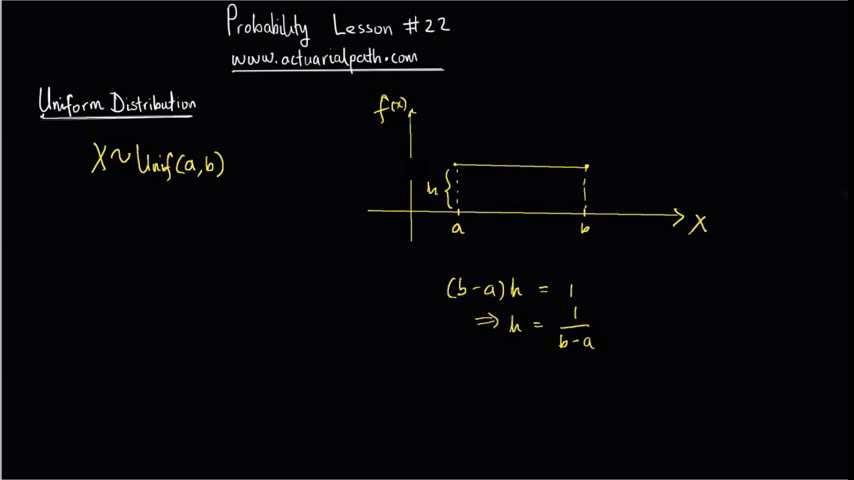 Probability Lesson #22
www.actuarialpath.com
Uniform Distribution
X~Unif(a,b)
f(x)
h
a
b
X
(b-a)h = 1
⇒ h = 1/(b-a)